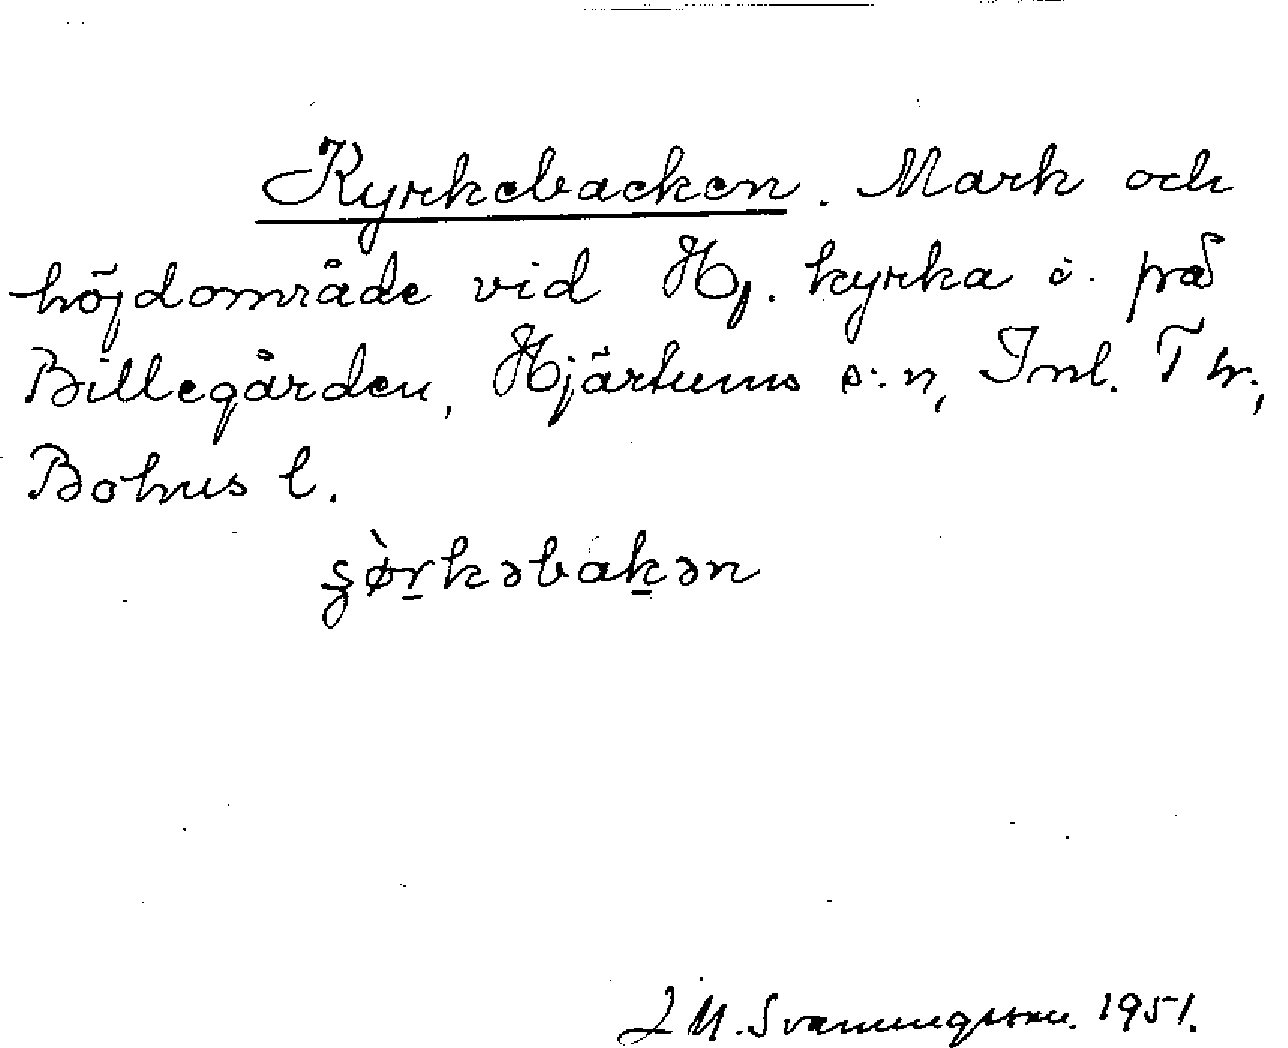 Kyrkebacken. Mark och
höjdområde vid Hj. kyrka i. på
Billegården, Hjärtums s:n, Inl. T hr.,
Bohus l.
şø̀r̲kəbak̲ən
J M. Svenningsson. 1951.